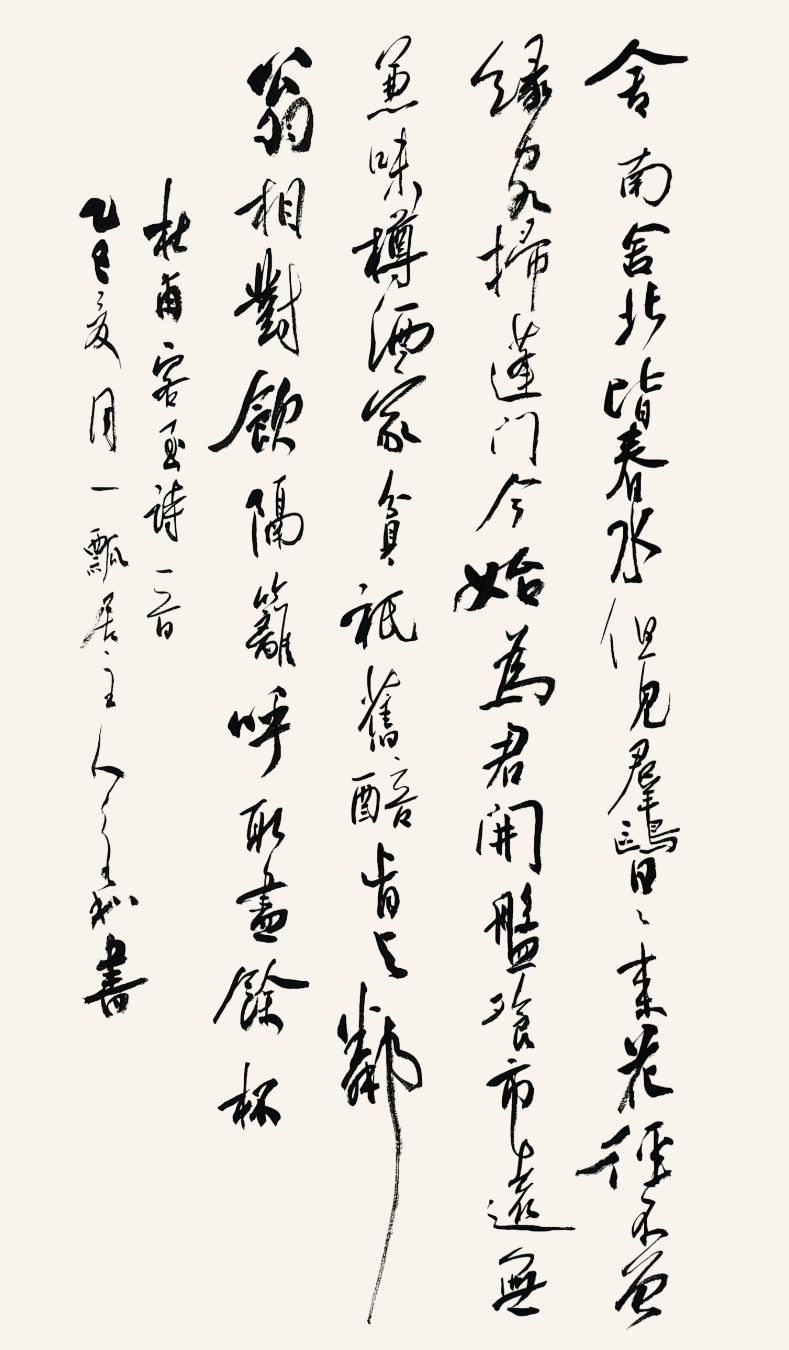 舍南舍北皆春水但見羣鷗日〻來花徑不曾
緣客掃蓬门今始為君開盤飱市遠無
兼味樽酒家貧祇舊醅肯与鄰
翁相對飲隔籬呼取盡餘杯
杜甫客至詩一首
乙巳夏月一瓢居主人書